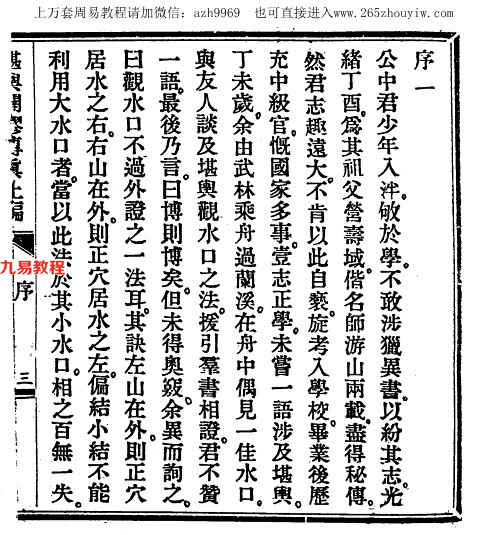 上万套周易教程请加微信：azh9969 也可直接进入www.265zhouyiw.com
序一
公中君少年入泮。敏於學。不敢涉獵異書。以紛其志。光
緒丁酉。爲其祖父營壽域。偕名師游山兩載。盡得秘傳。
然君志趣遠大。不肯以此自褻。旋考入學校。畢業後歷
充中級官。慨國家多事。壹志正學。未嘗一語涉及堪輿。
丁未歲。余由武林乘舟過蘭溪。在舟中偶見一佳水口。
與友人談及堪輿觀水口之法。援引羣書相證。君不贊
一語。最後乃言。曰博則博矣。但未得奧竅。余異而詢之。
曰觀水口不過外證之一法耳。其訣左山在外。則正穴
居水之右。右山在外。則正穴居水之左。偏結小結不能
利用大水口者。當以此法於其小水口相之。百無一失。
堪輿闢謬傳眞上編
九易教程
序
三